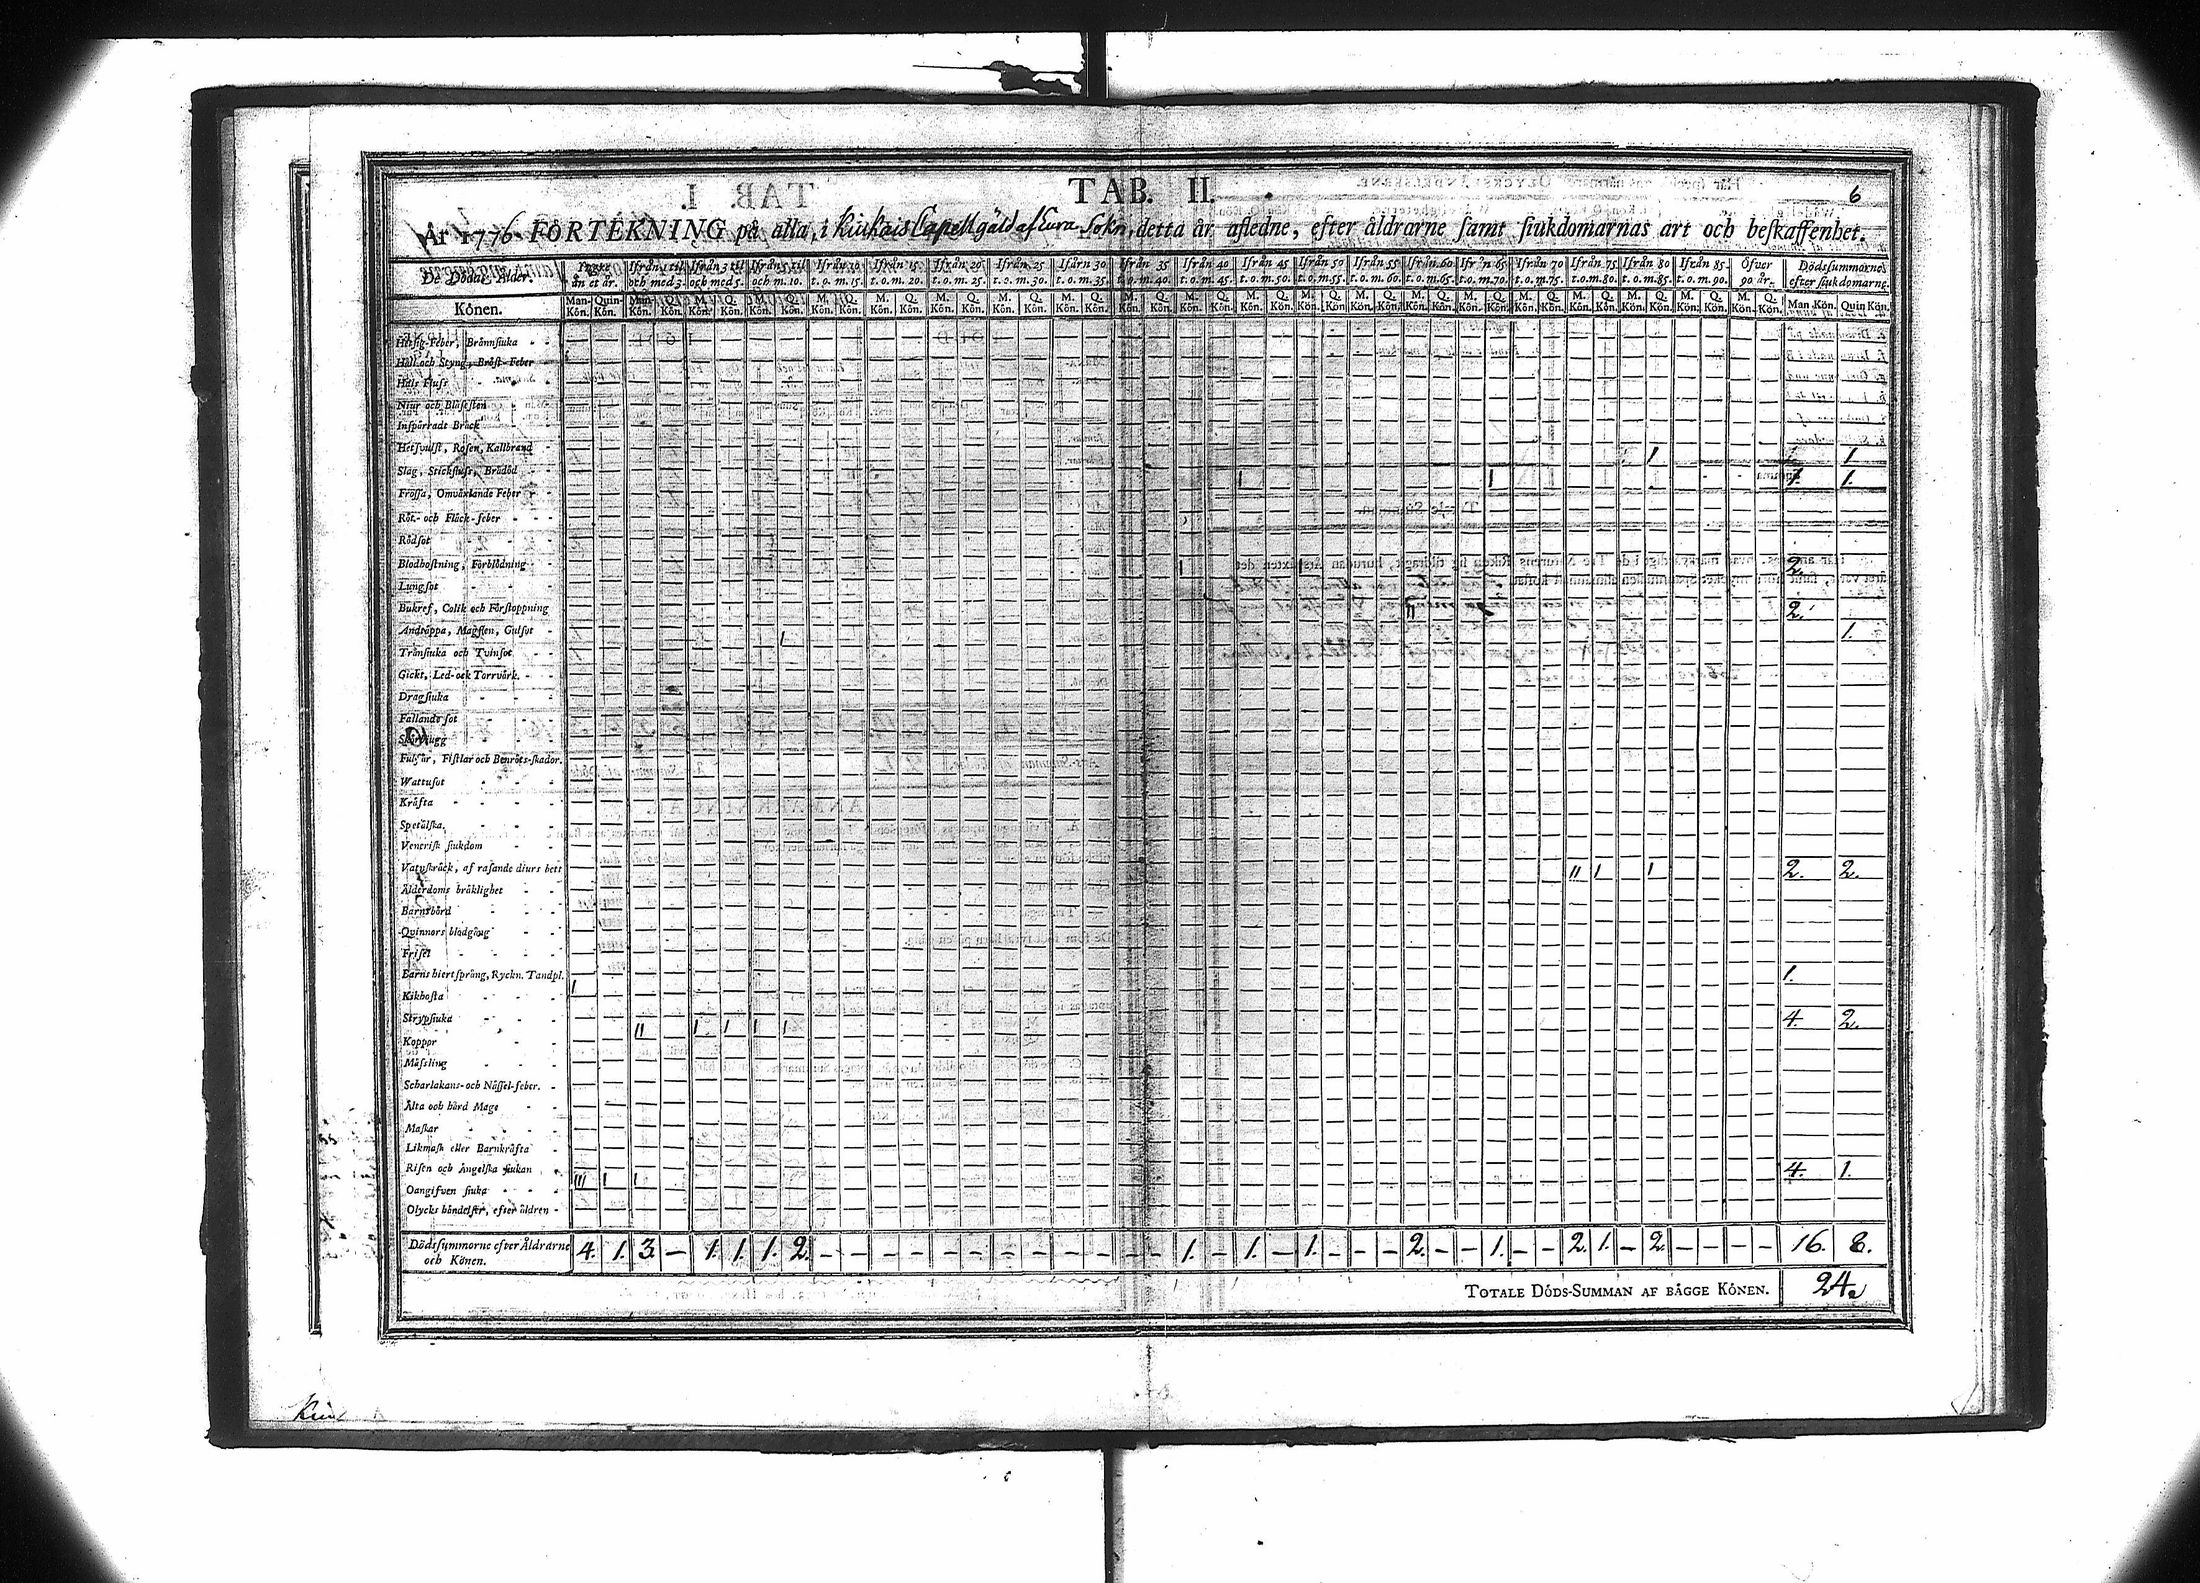 TAB. II.
6
År 1776. FÖRTEKNING på alla, i Kiukais Capellgäld af Eura Sokn, detta år afledne, efter åldrarne samt siukdomarnas art och beskaffenhet.
De Dödas Ålder. Yngre än et år. Ifrån 1 til och med 3. Ifrån 3 til och med 5. Ifrån 5 til och m. 10. Ifrån 10 t. o. m. 15. Ifrån 15 t. o. m. 20. Ifrån 20 t. o. m. 25. Ifrån 25 t. o. m. 30. Ifrån 30 t. o. m. 35. Ifrån 35 t. o. m. 40. Ifrån 40 t. o. m. 45. Ifrån 45 t. o. m. 50. Ifrån 50 t. o. m. 55. Ifrån 55 t. o. m. 60. Ifrån 60 t. o. m. 65. Ifrån 65 t. o. m. 70. Ifrån 70 t. o. m. 75. Ifrån 75 t. o. m. 80. Ifrån 80 t. o. m. 85. Ifrån 85 t. o. m. 90. Öfver 90 år. Dödssummorne efter siukdomarne.
Könen. Man-Kön. Quin-Kön. Man-Kön. Q. Kön. M. Kön. Q. Kön. M. Kön. Q. Kön. M. Kön. Q. Kön. M. Kön. Q. Kön. M. Kön. Q. Kön. M. Kön. Q. Kön. M. Kön. Q. Kön. M. Kön. Q. Kön. M. Kön. Q. Kön. M. Kön. Q. Kön. M. Kön. Q. Kön. M. Kön. Q. Kön. M. Kön. Q. Kön. M. Kön. Q. Kön. M. Kön. Q. Kön. M. Kön. Q. Kön. M. Kön. Q. Kön. M. Kön. Q. Kön. M. Kön. Q. Kön. Man Kön. Quin Kön.
Hetsig-Feber, Brännsiuka
Håll och Styng, Bröst-Feber
Hals Fluss
Niur och Blåsesten
Inspärradt Bråck
Hetsvulst, Rosen, Kallbrand
Slag, Stickfluss, Brådöd 1 1
Frossa, Omväxlande Feber 1 1 1. 1.
Röt- och Fläck-feber
Rödsot
Blodhostning, Förblödning
Lungsot 1 2.
Bukref, Colik och Förstoppning
Andtäppa, Magsten, Gulsot II 2.
Tränsiuka och Tvinsot 1 1.
Gickt, Led- ock Torrvärk.
Dragsiuka
Fallande sot
Skörbiugg
Fulsår, Fistlar och Benröts-skador.
Wattusot
Kräfta
Spetälska
Venerisk siukdom
Vatuskräck, af rasande diurs bett
Ålderdoms bräklighet II 1 1 2. 2.
Barnsbörd
Quinnors blodgång
Frisel
Barns hiertsprång, Ryckn. Tandpl.
Kikhosta 1 1.
Strypsiuka
Koppor II 1 1 1 1 4. 2.
Mässling
Scharlakans- och Nässel-feber.
Älta och hård Mage
Maskar
Likmask eller Barnkräfta
Risen och Ängelska siukan
Oangifven siuka III 1 1 4. 1.
Olycks händelser, efter åldren
Dödssummorne efter Åldrarne och Könen. 4. 1. 3 — 1. 1. 1. 2. — — — — — — — — — — — — 1. — 1. — 1. — — — 2. — — 1. — — 2. 1. — 2. — — — — 16. 8.
TOTALE DÖDS-SUMMAN AF BÄGGE KÖNEN. 24.